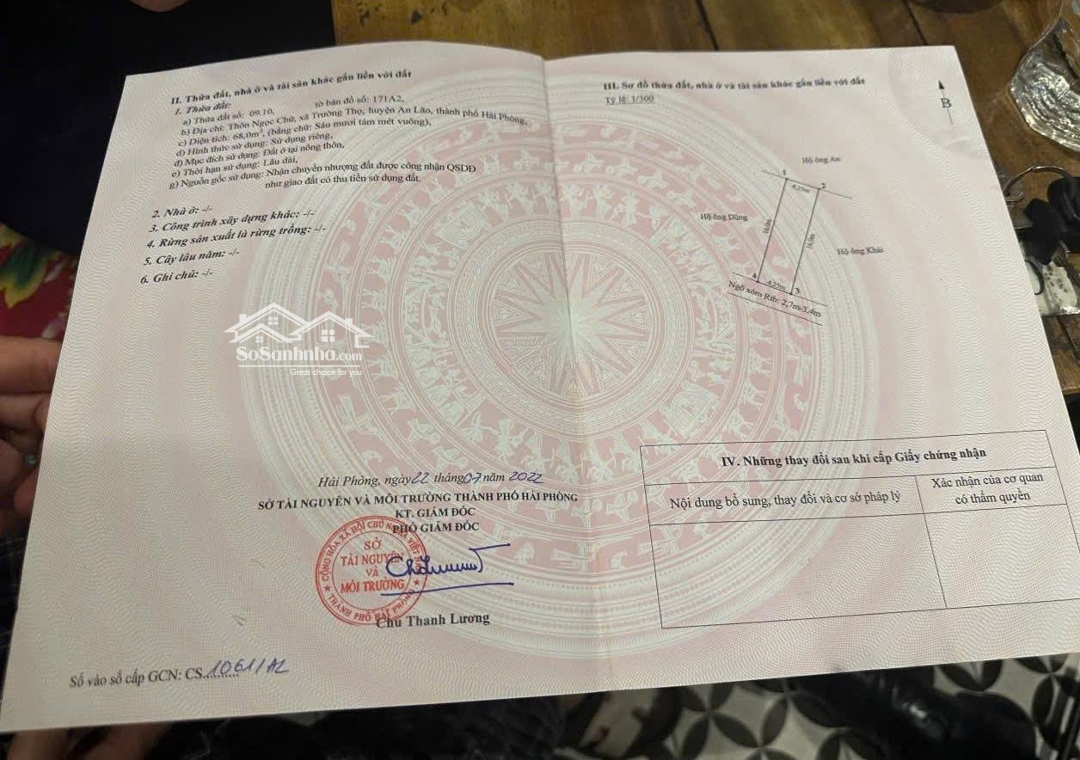 II. Thửa đất, nhà ở và tài sản khác gắn liền với đất
1. Thửa đất:
a) Thửa đất số: 09.10, tờ bản đồ số: 171A2,
b) Địa chỉ: Thôn Ngọc Chử, xã Trường Thọ, huyện An Lão, thành phố Hải Phòng,
c) Diện tích: 68,0m², (bằng chữ: Sáu mươi tám mét vuông),
d) Hình thức sử dụng: Sử dụng riêng,
đ) Mục đích sử dụng: Đất ở tại nông thôn,
e) Thời hạn sử dụng: Lâu dài,
g) Nguồn gốc sử dụng: Nhận chuyển nhượng đất được công nhận QSDĐ
như giao đất có thu tiền sử dụng đất.
2. Nhà ở: -/-
3. Công trình xây dựng khác: -/-
4. Rừng sản xuất là rừng trồng: -/-
5. Cây lâu năm: -/-
6. Ghi chú: -/-
SoSanhnha.com
Great choice for you
Hải Phòng, ngày 22 tháng 07 năm 2022
SỞ TÀI NGUYÊN VÀ MÔI TRƯỜNG THÀNH PHỐ HẢI PHÒNG
KT. GIÁM ĐỐC
PHÓ GIÁM ĐỐC
CỘNG HÒA XÃ HỘI CHỦ NGHĨA VIỆT NAM
SỞ
TÀI NGUYÊN
VÀ
MÔI TRƯỜNG
THÀNH PHỐ HẢI PHÒNG
Chu Thanh Lương
Số vào sổ cấp GCN: CS 1061/AL
III. Sơ đồ thửa đất, nhà ở và tài sản khác gắn liền với đất
Tỷ lệ: 1/300
B
Hộ ông An
1
4,25m
2
Hộ ông Dũng
16,0m
16,0m
Hộ ông Khải
4
4,25m
3
Ngõ xóm Rtb: 2,7m-3,4m
IV. Những thay đổi sau khi cấp Giấy chứng nhận
Nội dung bổ sung, thay đổi và cơ sở pháp lý
Xác nhận của cơ quan
có thẩm quyền